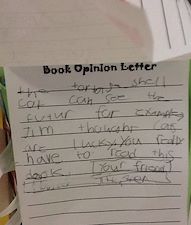 Book Opinion Letter
the tortois shell
cat can see the
futur for example
Jim thought cats
are lucky. You really
have to read this
book. Your friend